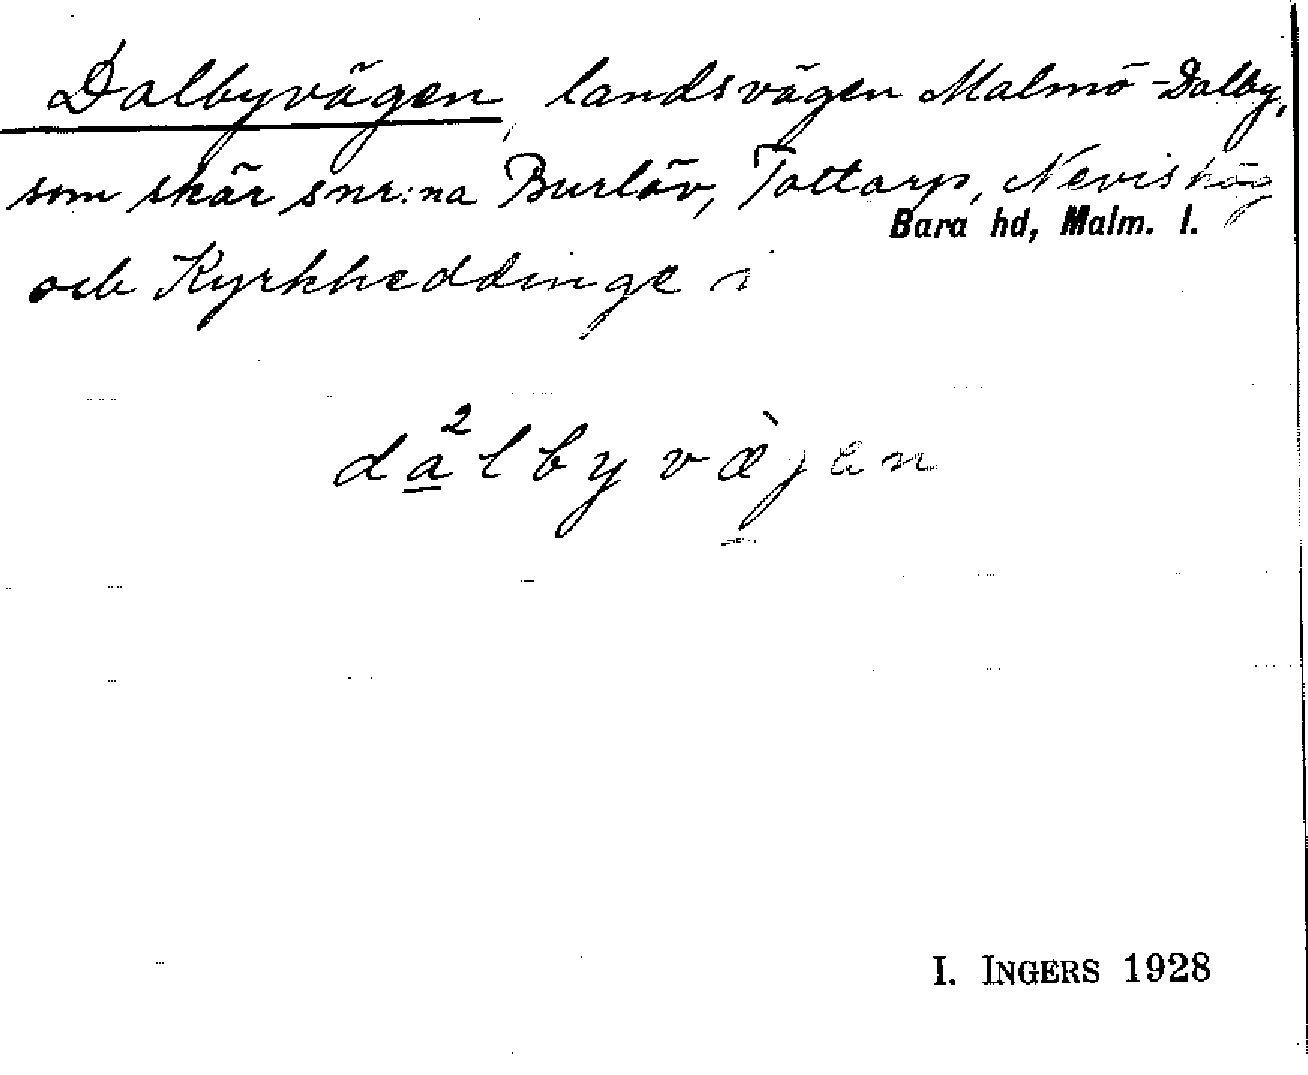 Dalbyvägen, landsvägen Malmö-Dalby,
som skär snr:na Burlöv, Tottarp, Nevishög
och Kyrkheddinge i
Bara hd, Malm. l.
da²lbyvæ̀jen
I. INGERS 1928